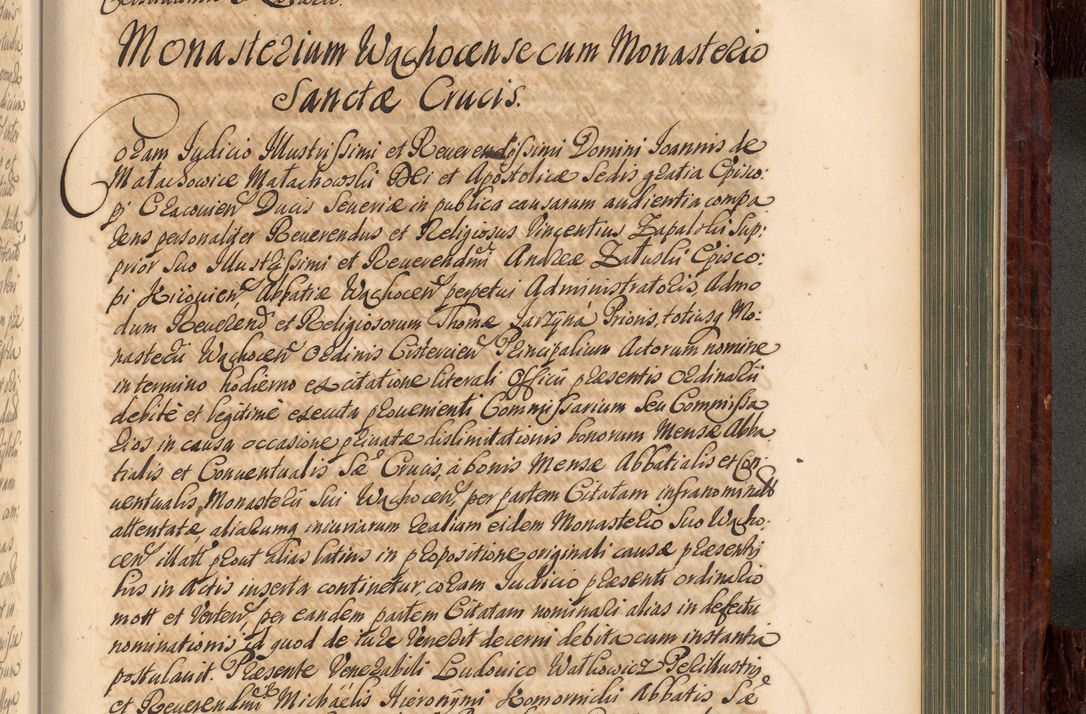 Monasterium Wąchocense cum Monasterio
Sanctæ Crucis.
Coram Judicio Illustrissimi et Reuerendissimi Domini Joannis de
Małachowice Małachowski Dei et Apostolicæ Sedis gratia Episco:
pi Cracouien Ducis Seueriæ in publica causarum audientia compa
rens personaliter Reuerendus et Religiosus Vincentius Zapalski Sup:
prior Suo Illustrissimi et Reuerendmi Andreæ Załuski Episco:
pi Kiiouien, Abbatiæ Wąchocen perpetui Administratoris, Admo
dum Reuerend et Religiosorum Thomæ Jarzyna Prioris, totiusq Mo:
nasterii Wąchocen Ordinis Cistercien Principalium Actorum nomine
in termino hodierno ex citatione literali Officii præsentis Ordinarii
debitè et legitimè executa prouenienti Commissarium Seu Commissa
rios in causa occasione priuatæ dislimitationis bonorum Mensæ Abba
tialis et Conuentualis Sæ Crucis, à bonis Mensæ Abbatialis et Con:
uentualis, Monasterii Sui Wąchocen, per partem Citatam infranominatt
attentatæ, aliarumq iniuriarum realium eidem Monasterio Suo Wącho:
cen illatt prout alias latius in propositione originali causæ præsenti
bus in Actis inserta continetur, coram Judicio præsenti ordinario
mott et Verten, per eandem partem Citatam nominari alias in defectu
nominationis id quod de iure Venerit decerni debita cum instantia
postulauit. Præsente Venerabili Ludouico Wałkowicz Perillustris
et Reuerendmi Michäelis Hieronymi Komornicki Abbatis Sæ